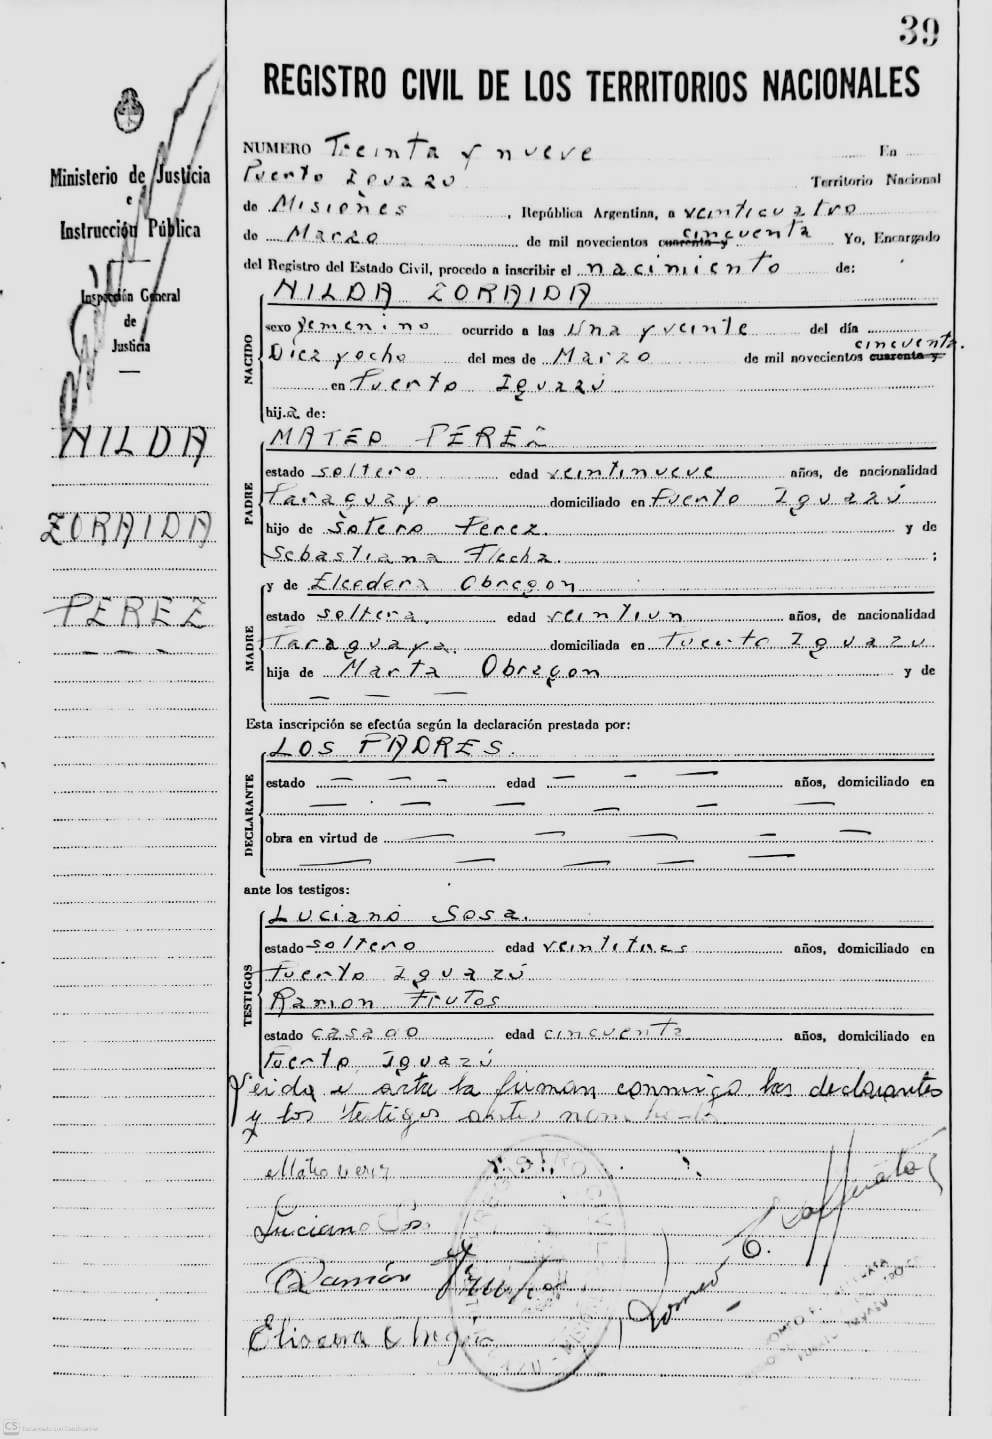 39
REGISTRO CIVIL DE LOS TERRITORIOS NACIONALES
Ministerio de Justicia
e
Instrucción Pública
Inspección General
de
Justicia
NILDA
ZORAIDA
PEREZ
NUMERO Treinta y nueve En
Puerto Iguazú Territorio Nacional
de Misiones, República Argentina, a veinticuatro
de Marzo de mil novecientos cuarenta y cincuenta Yo, Encargado
del Registro del Estado Civil, procedo a inscribir el nacimiento de:
NACIDO
NILDA ZORAIDA
sexo femenino ocurrido a las Una y veinte del día
Diez y ocho del mes de Marzo de mil novecientos cuarenta y cincuenta.
en Puerto Iguazú
hij.a de:
PADRE
MATEO PEREZ
estado soltero edad veintinueve años, de nacionalidad
Paraguayo domiciliado en Puerto Iguazú
hijo de Sotero Perez. y de
Sebastiana Flecha. ;
MADRE
y de Obregon
estado soltera. edad veintiun años, de nacionalidad
Paraguaya. domiciliada en Puerto Iguazu
hija de Marta Obregon y de
Esta inscripción se efectúa según la declaración prestada por:
DECLARANTE
LOS PADRES.
estado edad años, domiciliado en
obra en virtud de
ante los testigos:
TESTIGOS
Luciano Sosa.
estado soltero edad veintitres años, domiciliado en
Puerto Iguazú
Ramon Frutos
estado casado edad cincuenta años, domiciliado en
Puerto Iguazú
Leida el acta la firman conmigo los declarantes
y los testigos antes
Luciano
Ramón Frutos
Romeo O.
CS Escaneado con CamScanner